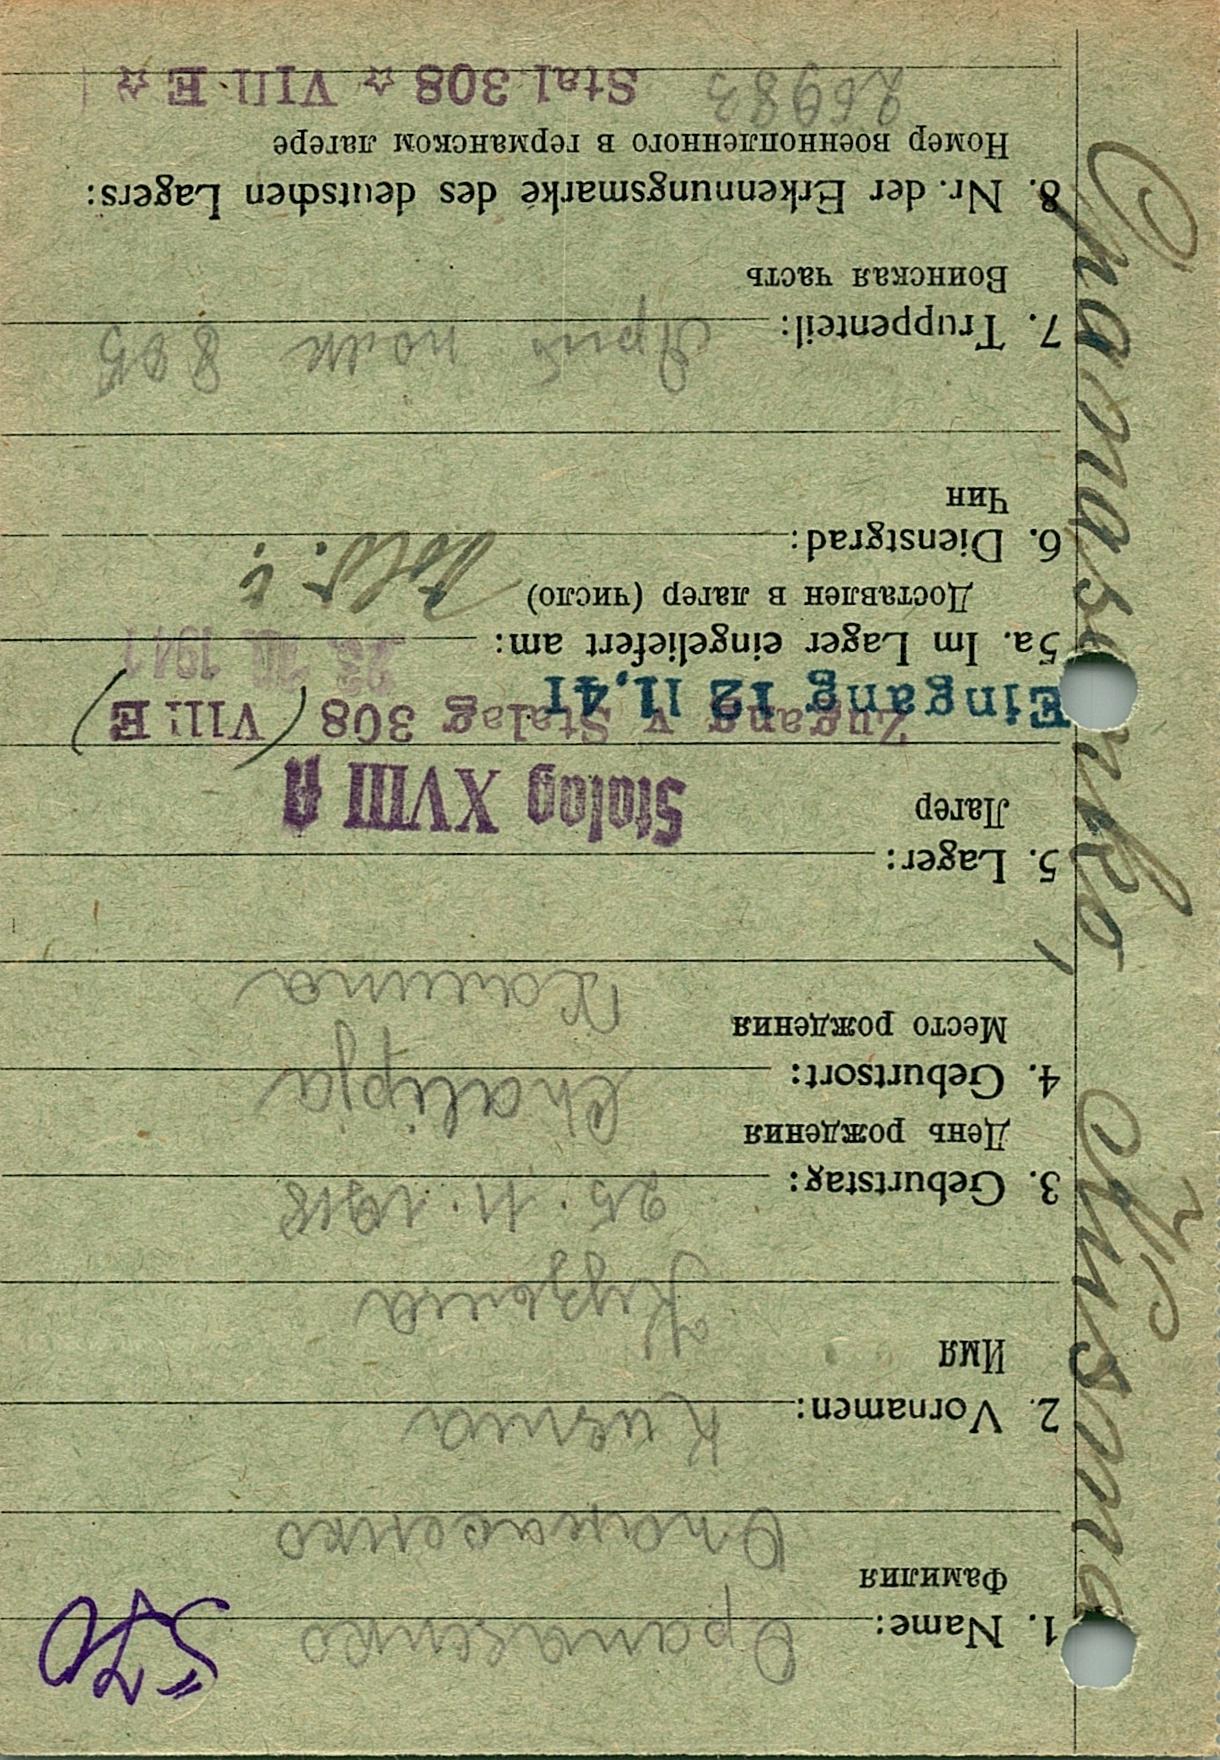 1. Name: Opanasenko
Фамилия
Опанасенко
2. Vornamen: Kusma
Имя
Кузьма
3. Geburtstag: 25.11.1918
День рождения
4. Geburtsort: Chalipja
Место рождения
5. Lager:
Лагер
Stalag XVIII A
Zugang v. Stalag 308 (VIII E)
Eingang 12 11,41
5a. Im Lager eingeliefert am: 23. 10. 1941
Доставлен в лагер (число)
6. Dienstgrad:
Чин
7. Truppenteil: полк 885
Воинская часть
8. Nr. der Erkennungsmarke des deutschen Lagers:
Номер военнопленного в германском лагере
26983 Stal. 308 ☆ VIII E ☆
Opanasenko, Kusma